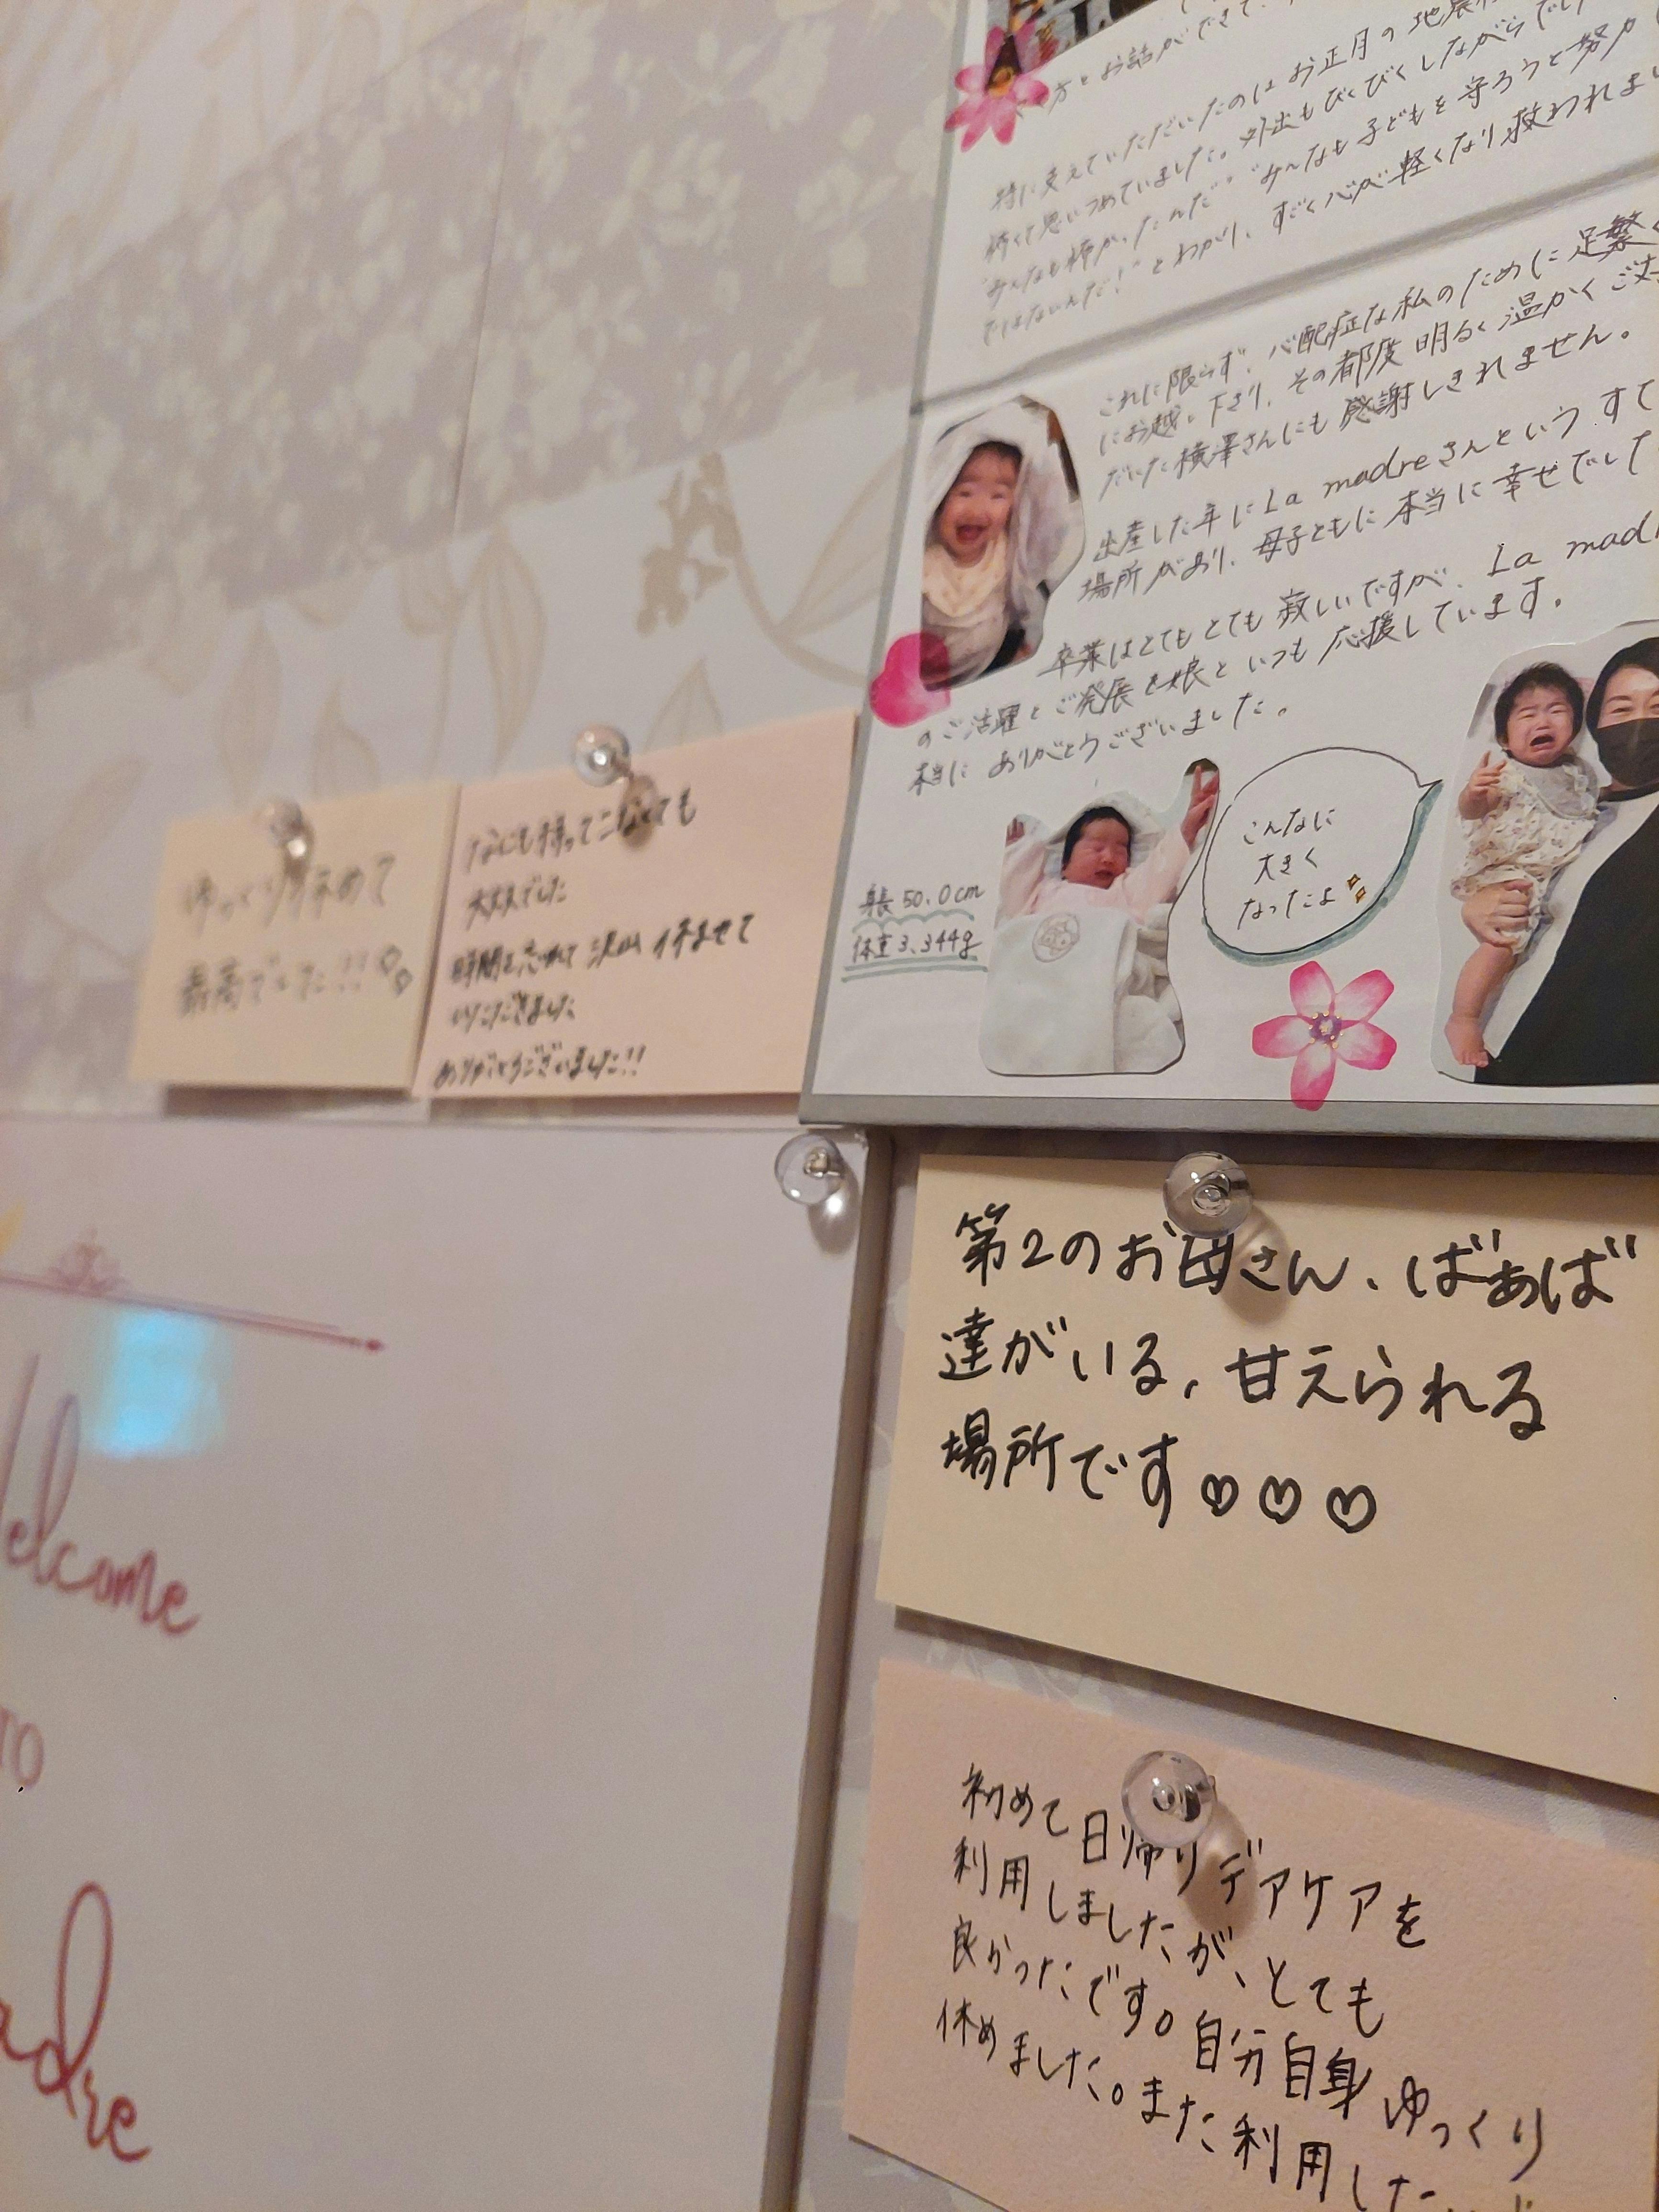 方とお話ができて、
特に支えていただいたのはお正月の地震
怖くて思いつめていました。外出もびくびくしながらで
"みんなも怖かったんだ" "み〜んなも子どもを守ろうと努力
ではないんだ!" とわかり、すごく心が軽くなり救われま
これに限らず、心配症な私のために足繁く
にお越し下さり、その都度明るく温かくご
だいた横澤さんにも感謝しきれません。
出産した年にLa madreさんという すて
場所があり、母子ともに本当に幸せでした
卒業はとてもとても寂しいですが、La mad
のご活躍とご発展を娘といつも応援しています。
本当に ありがとうございました。
身長 50.0cm
体重 3,344g
こんなに
大きく
なったよ
ゆっくり休めて
最高でした!!
なにも持ってこなくても
大丈夫でした
時間を忘れて沢山 休ませて
いただきました
ありがとうございました!!
第2のお母さん、ばぁば
達がいる、甘えられる
場所です♡♡♡
初めて日帰りデアケアを
利用しましたが、とても
良かったです。自分自身ゆっくり
休めました。また利用した
Welcome
TO
adre